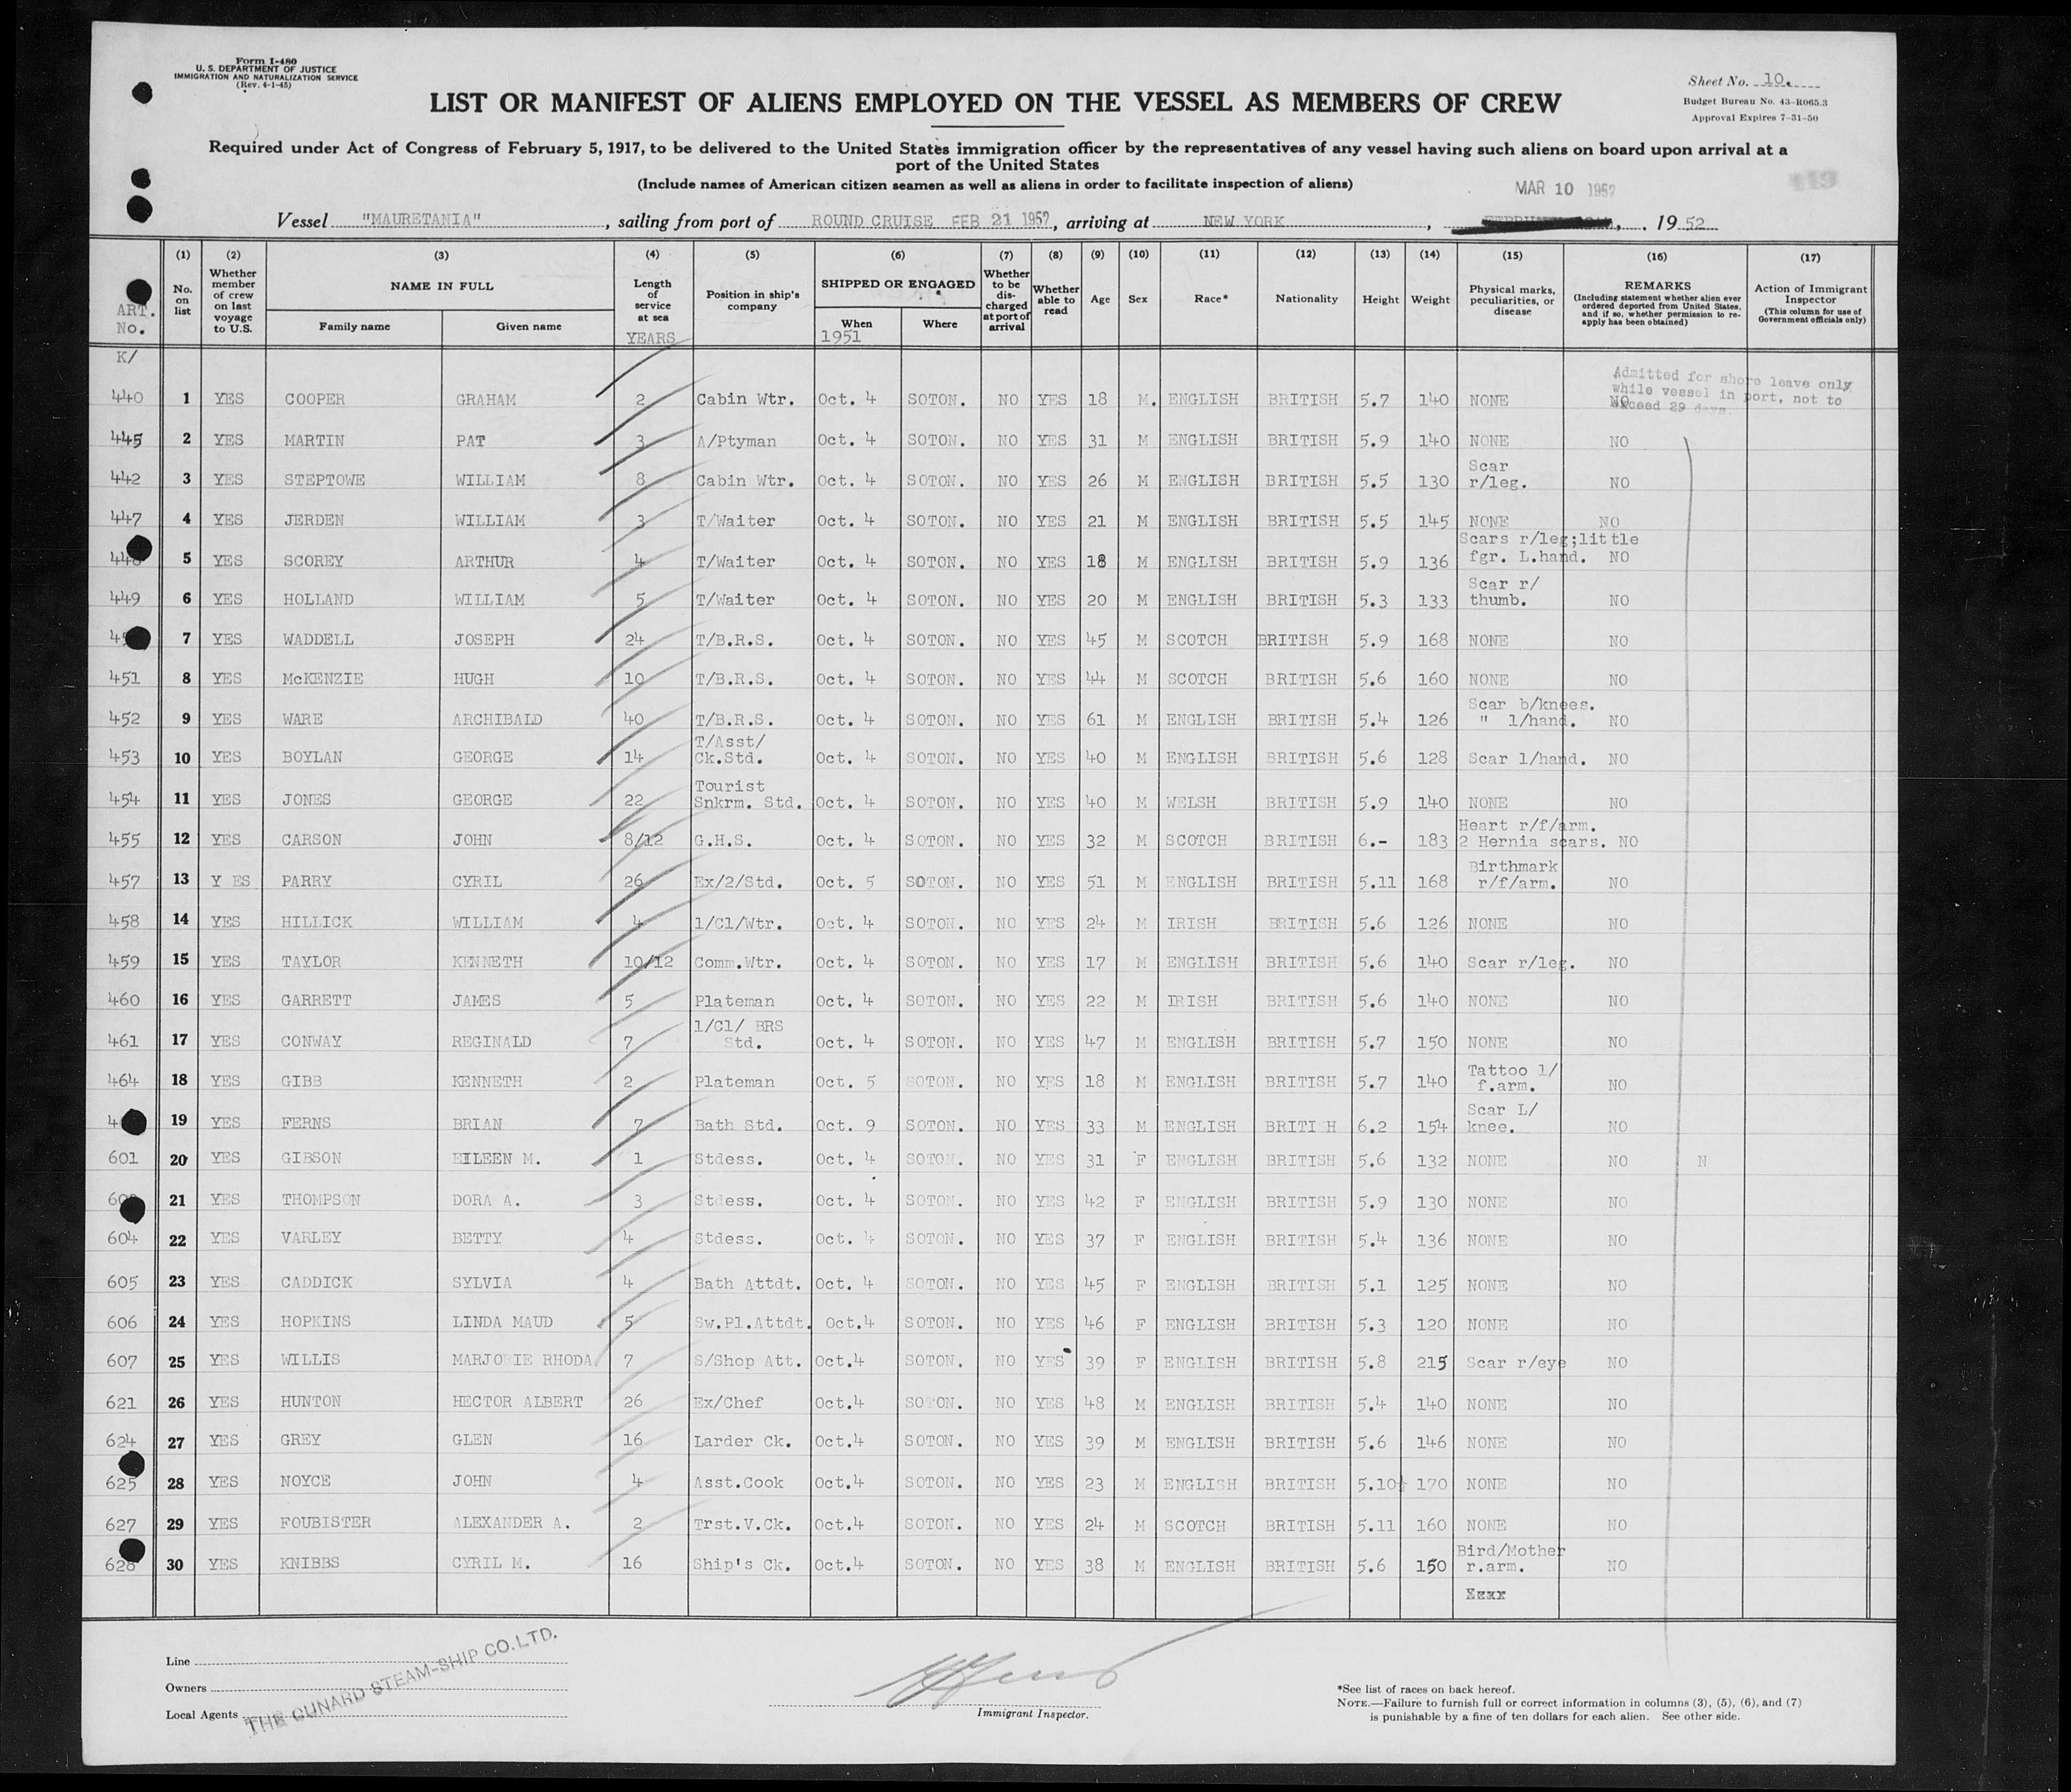 Form I-480
U. S. DEPARTMENT OF JUSTICE
IMMIGRATION AND NATURALIZATION SERVICE
(Rev. 4-1-45)
Sheet No. 10.
Budget Bureau No. 43-R065.3
Approval Expires 7-31-50
LIST OR MANIFEST OF ALIENS EMPLOYED ON THE VESSEL AS MEMBERS OF CREW
Required under Act of Congress of February 5, 1917, to be delivered to the United States immigration officer by the representatives of any vessel having such aliens on board upon arrival at a
port of the United States
(Include names of American citizen seamen as well as aliens in order to facilitate inspection of aliens)
MAR 10 1952
119
Vessel "MAURETANIA", sailing from port of ROUND CRUISE FEB 21 1952, arriving at NEW YORK, 1952
(1) (2) (3) (4) (5) (6) (7) (8) (9) (10) (11) (12) (13) (14) (15) (16) (17)
ART. No. No. on list Whether member of crew on last voyage to U.S. NAME IN FULL Family name Given name Length of service at sea YEARS Position in ship's company SHIPPED OR ENGAGED When 1951 Where Whether to be discharged at port of arrival Whether able to read Age Sex Race* Nationality Height Weight Physical marks, peculiarities, or disease REMARKS (Including statement whether alien ever ordered deported from United States, and if so, whether permission to re-apply has been obtained) Action of Immigrant Inspector (This column for use of Government officials only)
K/
Admitted for shore leave only
while vessel in port, not to
exceed 29 days.
440 1 YES COOPER GRAHAM 2 Cabin Wtr. Oct. 4 SOTON. NO YES 18 M. ENGLISH BRITISH 5.7 140 NONE NO
445 2 YES MARTIN PAT 3 A/Ptyman Oct. 4 SOTON. NO YES 31 M ENGLISH BRITISH 5.9 140 NONE NO
442 3 YES STEPTOWE WILLIAM 8 Cabin Wtr. Oct. 4 SOTON. NO YES 26 M ENGLISH BRITISH 5.5 130 Scar r/leg. NO
447 4 YES JERDEN WILLIAM 3 T/Waiter Oct. 4 SOTON. NO YES 21 M ENGLISH BRITISH 5.5 145 NONE NO
5 YES SCOREY ARTHUR 4 T/Waiter Oct. 4 SOTON. NO YES 18 M ENGLISH BRITISH 5.9 136 Scars r/leg;little fgr. L.hand. NO
449 6 YES HOLLAND WILLIAM 5 T/Waiter Oct. 4 SOTON. NO YES 20 M ENGLISH BRITISH 5.3 133 Scar r/ thumb. NO
7 YES WADDELL JOSEPH 24 T/B.R.S. Oct. 4 SOTON. NO YES 45 M SCOTCH BRITISH 5.9 168 NONE NO
451 8 YES McKENZIE HUGH 10 T/B.R.S. Oct. 4 SOTON. NO YES 44 M SCOTCH BRITISH 5.6 160 NONE NO
452 9 YES WARE ARCHIBALD 40 T/B.R.S. Oct. 4 SOTON. NO YES 61 M ENGLISH BRITISH 5.4 126 Scar b/knees. " l/hand. NO
453 10 YES BOYLAN GEORGE 14 T/Asst/ Ck.Std. Oct. 4 SOTON. NO YES 40 M ENGLISH BRITISH 5.6 128 Scar l/hand. NO
454 11 YES JONES GEORGE 22 Tourist Snkrm. Std. Oct. 4 SOTON. NO YES 40 M WELSH BRITISH 5.9 140 NONE NO
455 12 YES CARSON JOHN 8/12 G.H.S. Oct. 4 SOTON. NO YES 32 M SCOTCH BRITISH 6.- 183 Heart r/f/arm. 2 Hernia scars. NO
457 13 Y ES PARRY CYRIL 26 Ex/2/Std. Oct. 5 SOTON. NO YES 51 M ENGLISH BRITISH 5.11 168 Birthmark r/f/arm. NO
458 14 YES HILLICK WILLIAM 4 1/Cl/Wtr. Oct. 4 SOTON. NO YES 24 M IRISH BRITISH 5.6 126 NONE NO
459 15 YES TAYLOR KENNETH 10/12 Comm.Wtr. Oct. 4 SOTON. NO YES 17 M ENGLISH BRITISH 5.6 140 Scar r/leg. NO
460 16 YES GARRETT JAMES 5 Plateman Oct. 4 SOTON. NO YES 22 M IRISH BRITISH 5.6 140 NONE NO
461 17 YES CONWAY REGINALD 7 1/Cl/ BRS Std. Oct. 4 SOTON. NO YES 47 M ENGLISH BRITISH 5.7 150 NONE NO
464 18 YES GIBB KENNETH 2 Plateman Oct. 5 SOTON. NO YES 18 M ENGLISH BRITISH 5.7 140 Tattoo l/ f.arm. NO
19 YES FERNS BRIAN 7 Bath Std. Oct. 9 SOTON. NO YES 33 M ENGLISH BRITI H 6.2 154 Scar L/ knee. NO
601 20 YES GIBSON EILEEN M. 1 Stdess. Oct. 4 SOTON. NO YES 31 F ENGLISH BRITISH 5.6 132 NONE NO N
21 YES THOMPSON DORA A. 3 Stdess. Oct. 4 SOTON. NO YES 42 F ENGLISH BRITISH 5.9 130 NONE NO
604 22 YES VARLEY BETTY 4 Stdess. Oct. 4 SOTON. NO YES 37 F ENGLISH BRITISH 5.4 136 NONE NO
605 23 YES CADDICK SYLVIA 4 Bath Attdt. Oct. 4 SOTON. NO YES 45 F ENGLISH BRITISH 5.1 125 NONE NO
606 24 YES HOPKINS LINDA MAUD 5 Sw.Pl.Attdt. Oct.4 SOTON. NO YES 46 F ENGLISH BRITISH 5.3 120 NONE NO
607 25 YES WILLIS MARJORIE RHODA 7 S/Shop Att. Oct.4 SOTON. NO YES 39 F ENGLISH BRITISH 5.8 215 Scar r/eye NO
621 26 YES HUNTON HECTOR ALBERT 26 Ex/Chef Oct.4 SOTON. NO YES 48 M ENGLISH BRITISH 5.4 140 NONE NO
624 27 YES GREY GLEN 16 Larder Ck. Oct.4 SOTON. NO YES 39 M ENGLISH BRITISH 5.6 146 NONE NO
625 28 YES NOYCE JOHN 4 Asst.Cook Oct.4 SOTON. NO YES 23 M ENGLISH BRITISH 5.10½ 170 NONE NO
627 29 YES FOUBISTER ALEXANDER A. 2 Trst.V.Ck. Oct.4 SOTON. NO YES 24 M SCOTCH BRITISH 5.11 160 NONE NO
628 30 YES KNIBBS CYRIL M. 16 Ship's Ck. Oct.4 SOTON. NO YES 38 M ENGLISH BRITISH 5.6 150 Bird/Mother r.arm. NO
Line
Owners
Local Agents
THE CUNARD STEAM-SHIP CO. LTD.
Immigrant Inspector.
*See list of races on back hereof.
NOTE.—Failure to furnish full or correct information in columns (3), (5), (6), and (7)
is punishable by a fine of ten dollars for each alien. See other side.